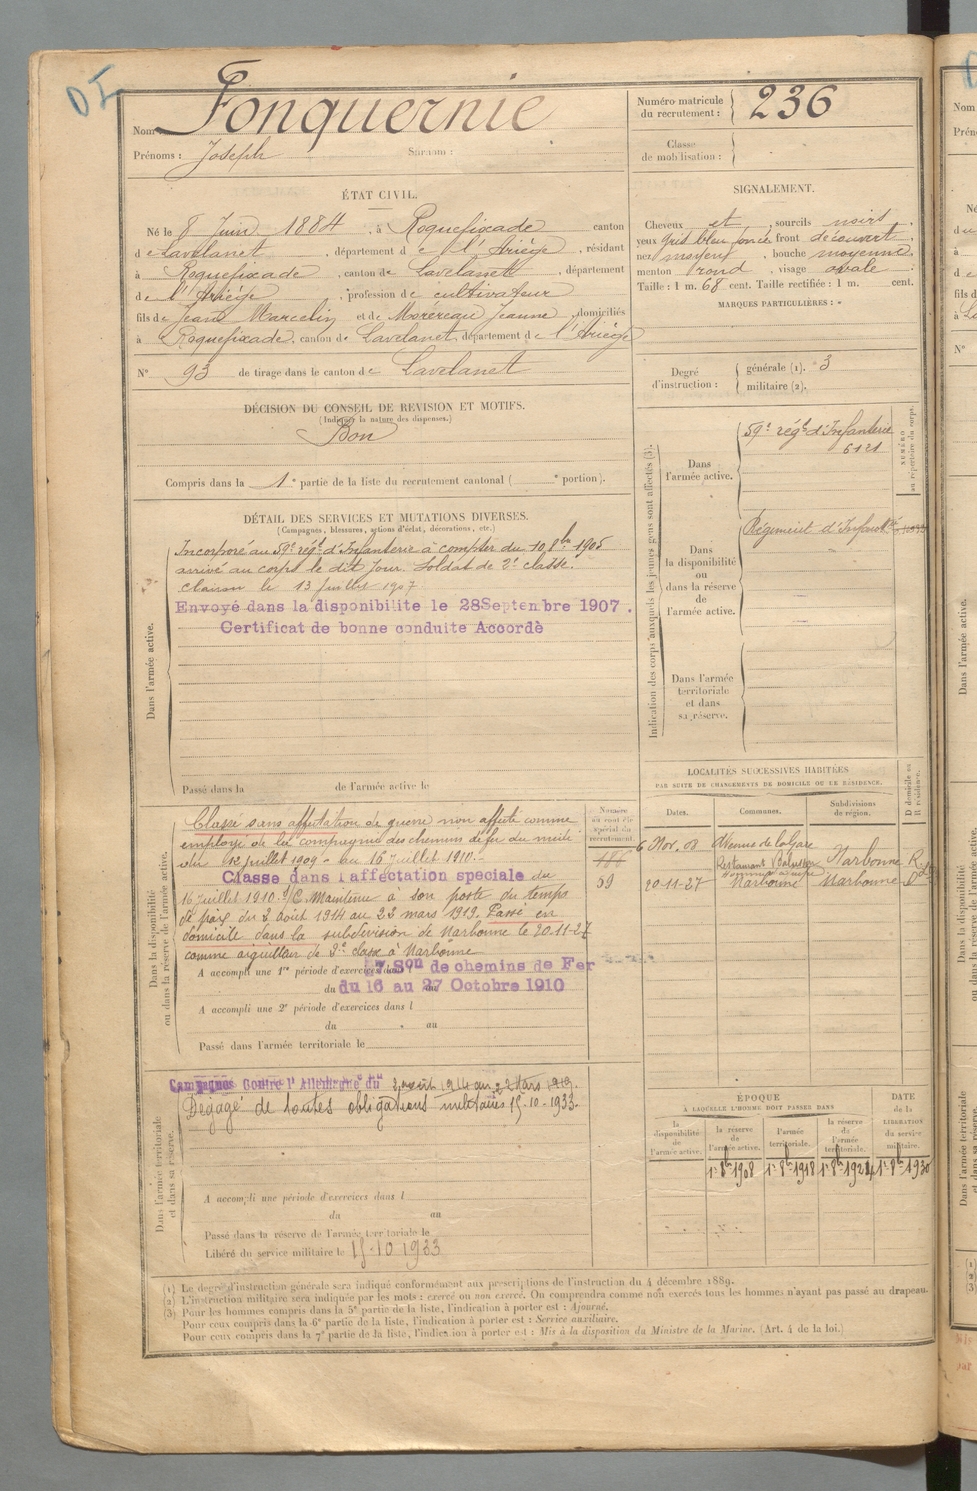 Nom : Fonquernie
Prénoms : Joseph Surnom :
Numéro matricule du recrutement : 236
Classe de mobilisation :
ÉTAT CIVIL.
Né le 8 Juin 1884, à Roquefixade canton
de Lavelanet, département de l'Ariège, résidant
à Roquefixade, canton de Lavelanet, département
de l'Ariège, profession de cultivateur
fils de Jean Marcelin et de Jeanne, domiciliés
à Roquefixade, canton de Lavelanet, département de l'Ariège
N° 93 de tirage dans le canton de Lavelanet
SIGNALEMENT.
Cheveux et, sourcils noirs,
yeux gris bleu foncé front découvert,
nez moyen, bouche moyenne,
menton rond, visage ovale
Taille : 1 m. 68 cent. Taille rectifiée : 1 m. cent.
MARQUES PARTICULIÈRES : "
Degré d'instruction :
générale (1). 3
militaire (2).
DÉCISION DU CONSEIL DE REVISION ET MOTIFS.
(Indiquer la nature des dispenses.)
Bon
Compris dans la 1e partie de la liste du recrutement cantonal ( e portion).
DÉTAIL DES SERVICES ET MUTATIONS DIVERSES.
(Campagnes, blessures, actions d'éclat, décorations, etc.)
Dans l'armée active.
Incorporé au 59e régt d'Infanterie à compter du 10 8bre 1905
arrivé au corps le dit jour. Soldat de 2e classe.
Clairon le 13 Juillet 1907
Envoyé dans la disponibilite le 28 Septembre 1907.
Certificat de bonne conduite Accordè
Passé dans la de l'armée active le
Indication des corps auxquels les jeunes gens sont affectés (3).
NUMÉRO au répertoire du corps.
Dans l'armée active.
59e régt d'Infanterie
6121
Dans la disponibilité ou dans la réserve de l'armée active.
Régiment d'Infant
Dans l'armée territoriale et dans sa réserve.
Dans la disponibilité ou dans la réserve de l'armée active.
Numéro
spécial du recrutement
Classé sans affectation de guerre non affecté comme
employé de la compagnie des chemins de fer du midi
du 12 juillet 1909 au 16 Juillet 1910.
Classe dans l affectation speciale du
16 Juillet 1910. Maintenu à son poste du temps
de paix du 3 Août 1914 au 22 mars 1919. Passé en
domicile dans la subdivision de Narbonne le 20-11-27
comme aiguilleur de 2e classe à Narbonne
59
A accompli une 1re période d'exercices dans Son de chemins de Fer
du 16 au 27 Octobre 1910
A accompli une 2e période d'exercices dans l
du au
Passé dans l'armée territoriale le
LOCALITÉS SUCCESSIVES HABITÉES
PAR SUITE DE CHANGEMENTS DE DOMICILE OU DE RÉSIDENCE.
Dates. Communes. Subdivisions de région. D domicile ou R résidence.
6 Nov. 08 Avenue de la Gare
Restaurant Narbonne R
20-11-27 Narbonne Narbonne D
Dans l'armée territoriale et dans sa réserve.
Campagnes Contre l' Allemagne du 3 août 1914 au 22 Mars 1919.
Dégagé de toutes obligations militaires 15-10-1933.
A accompli une période d'exercices dans l
du au
Passé dans la réserve de l'armée territoriale le
Libéré du service militaire le 15-10 1933
ÉPOQUE
À LAQUELLE L'HOMME DOIT PASSER DANS
DATE de la LIBÉRATION du service militaire.
la disponibilité de l'armée active.
la réserve de l'armée active.
l'armée territoriale.
la réserve de l'armée territoriale.
1r 8b 1908 1r 8b 1918 1r 8b 1924 1r 8b 1930
(1) Le degré d'instruction générale sera indiqué conformément aux prescriptions de l'instruction du 4 décembre 1889.
(2) L'instruction militaire sera indiquée par les mots : exercé ou non exercé. On comprendra comme non exercés tous les hommes n'ayant pas passé au drapeau.
(3) Pour les hommes compris dans la 5e partie de la liste, l'indication à porter est : Ajourné.
Pour ceux compris dans la 6e partie de la liste, l'indication à porter est : Service auxiliaire.
Pour ceux compris dans la 7e partie de la liste, l'indication à porter est : Mis à la disposition du Ministre de la Marine. (Art. 4 de la loi.)